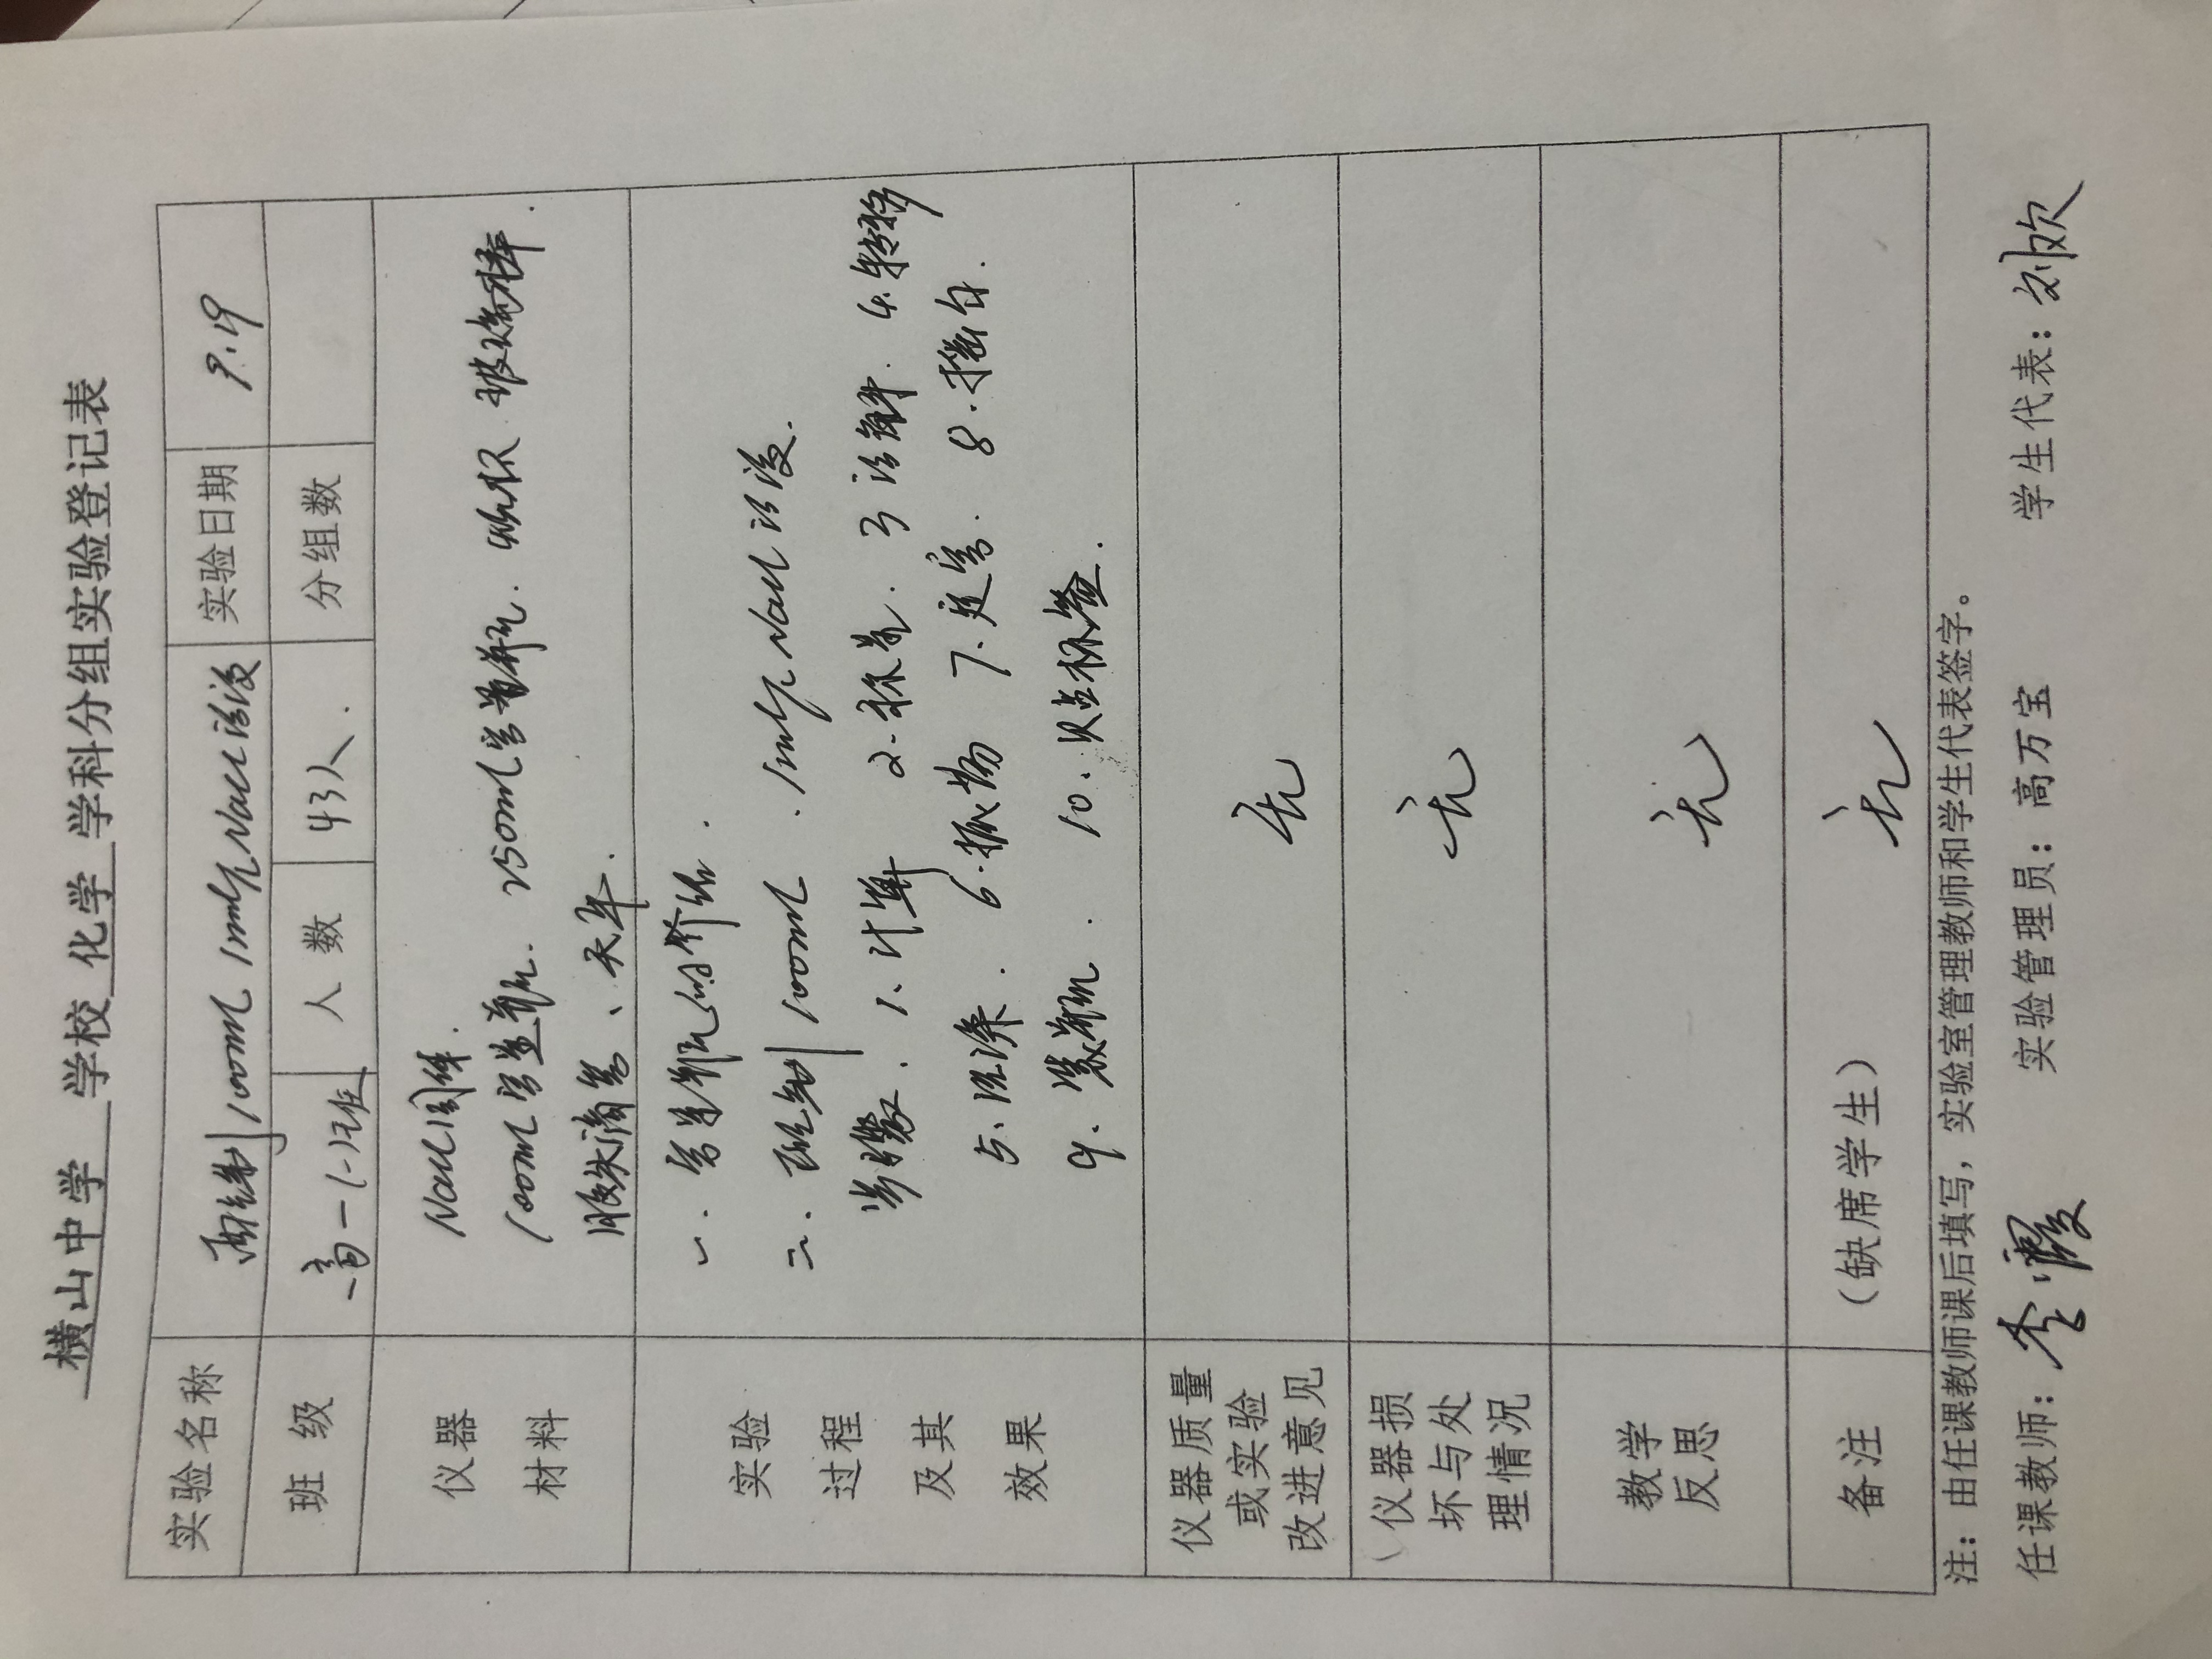 横山中学 学校 化学 学科分组实验登记表
实验名称 配制100mL 1mol/L NaCl溶液 实验日期 9.19
班级 高一(1)班 人数 43人. 分组数
仪器材料
NaCl固体.
100mL容量瓶. 250mL容量瓶. 烧杯. 玻璃棒.
胶头滴管、天平.
实验过程及其效果
一. 容量瓶的介绍.
二. 配制100mL . 1mol/L NaCl溶液.
步骤. 1. 计算 2. 称量. 3 溶解. 4. 转移
5. 洗涤. 6. 振荡 7. 定容. 8. 摇匀.
9. 装瓶. 10. 贴标签.
仪器质量或实验改进意见 无
仪器损坏与处理情况 无
教学反思 无
备注 (缺席学生) 无
注：由任课教师课后填写，实验室管理教师和学生代表签字。
任课教师：李霞 实验管理员：高万宝 学生代表：刘欢